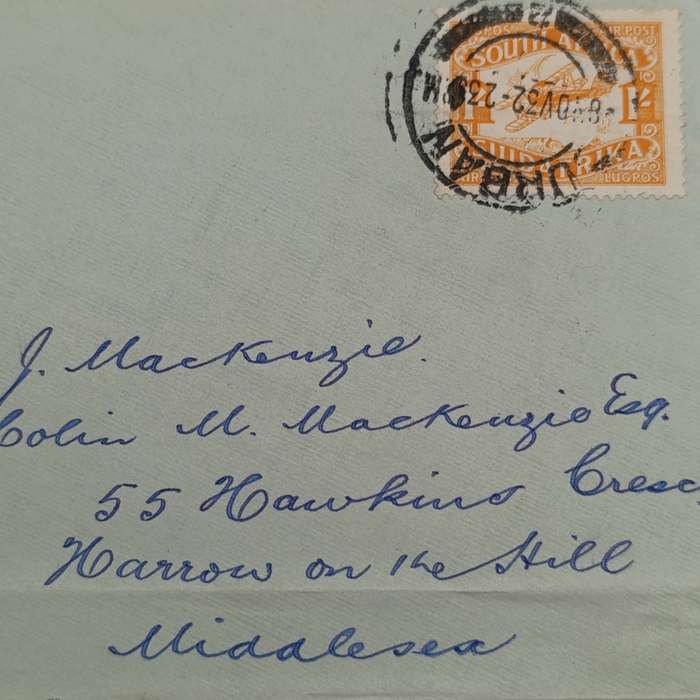 POS AIR POST
SOUTH AFRICA
8 NOV 32 - 2 30 PM
1/-
SUIDAFRIKA
LUGPOS
URBAN
J. Mackenzie.
Colin M. Mackenzie Esq.
55 Hawkins Cresc
Harrow on the Hill
Middlesex